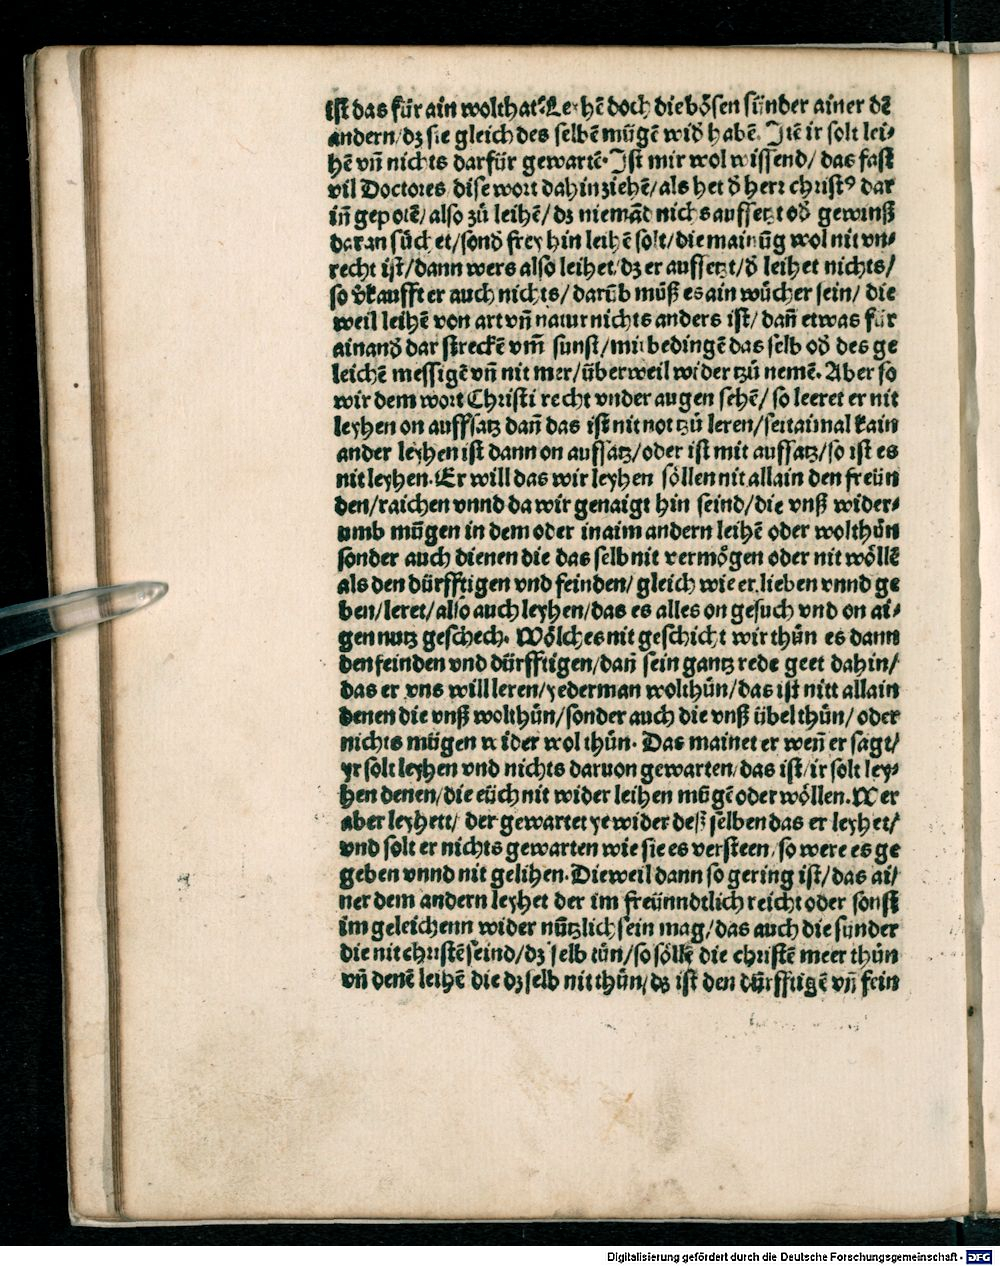 ist das für ain wolthat? Leyhē doch die bösen sünder ainer dē
andern/dz sie gleich des selbē mügē wid̄ habē. Itē ir solt lei-
hē vn̄ nichts darfür gewartē. Ist mir wol wissend/ das fast
vil Doctores dise wort dahin ziehē/als het d̄ herr christꝰ dar
in̄ gepotē/also zů leihē/dz niemād nichs auffsetzt od̄ gewinß
daran sůchet/sond̄ frey hin leihē solt/die mainūg wol nit vn-
recht ist/dann wers also leihet/dz er auffsetzt/d̄ leihet nichts/
so v̄kaufft er auch nichts/darūb můß es ain wůcher sein/ die
weil leihē von art vn̄ natur nichts anders ist/ dan̄ etwas für
ainand̄ dar streckē vm̄ sunst/mit bedingē das selb od̄ des ge
leichē messigē vn̄ nit mer/über weil wider tzů nemē. Aber so
wir dem wort Christi recht vnder augen sehē/ so leeret er nit
leyhen on auffsatz dan̄ das ist nit not tzů leren/seitaimal kain
ander leyhen ist dann on auffsatz/oder ist mit auffsatz/so ist es
nit leyhen. Er will das wir leyhen söllen nit allain den freün
den/raichen vnnd da wir genaigt hin seind/die vnß wider-
umb mügen in dem oder in aim andern leihē oder wolthůn
sonder auch dienen die das selb nit vermögen oder nit wöllē
als den dürfftigen vnd feinden/ gleich wie er lieben vnnd ge
ben/leret/also auch leyhen/das es alles on gesuch vnd on ai-
gen nutz geschech. Wölches nit geschicht wir thůn es dann
den feinden vnd dürfftigen/dan̄ sein gantz rede geet dahin/
das er vns will leren/yederman wolthůn/das ist nitt allain
denen die vnß wolthůn/sonder auch die vnß übel thůn/ oder
nichts mügen wider wol thůn. Das mainet er wen̄ er sagt/
yr solt leyhen vnd nichts daruon gewarten/das ist/ir solt ley-
hen denen/die eüch nit wider leihen mügē oder wöllen. Wer
aber leyhett/ der gewartet ye wider deß selben das er leyhet/
vnd solt er nichts gewarten wie sie es versteen/so were es ge
geben vnnd nit gelihen. Dieweil dann so gering ist/das ai/
ner dem andern leyhet der im freünndtlich reicht oder sonst
im geleichenn wider nützlich sein mag/das auch die sünder
die nit christē seind/dz selb tůn/so söllē die christē meer thůn
vn̄ denē leihē die dz selb nit thůn/dz ist den dürfftigē vn̄ fein
Digitalisierung gefördert durch die Deutsche Forschungsgemeinschaft - DFG